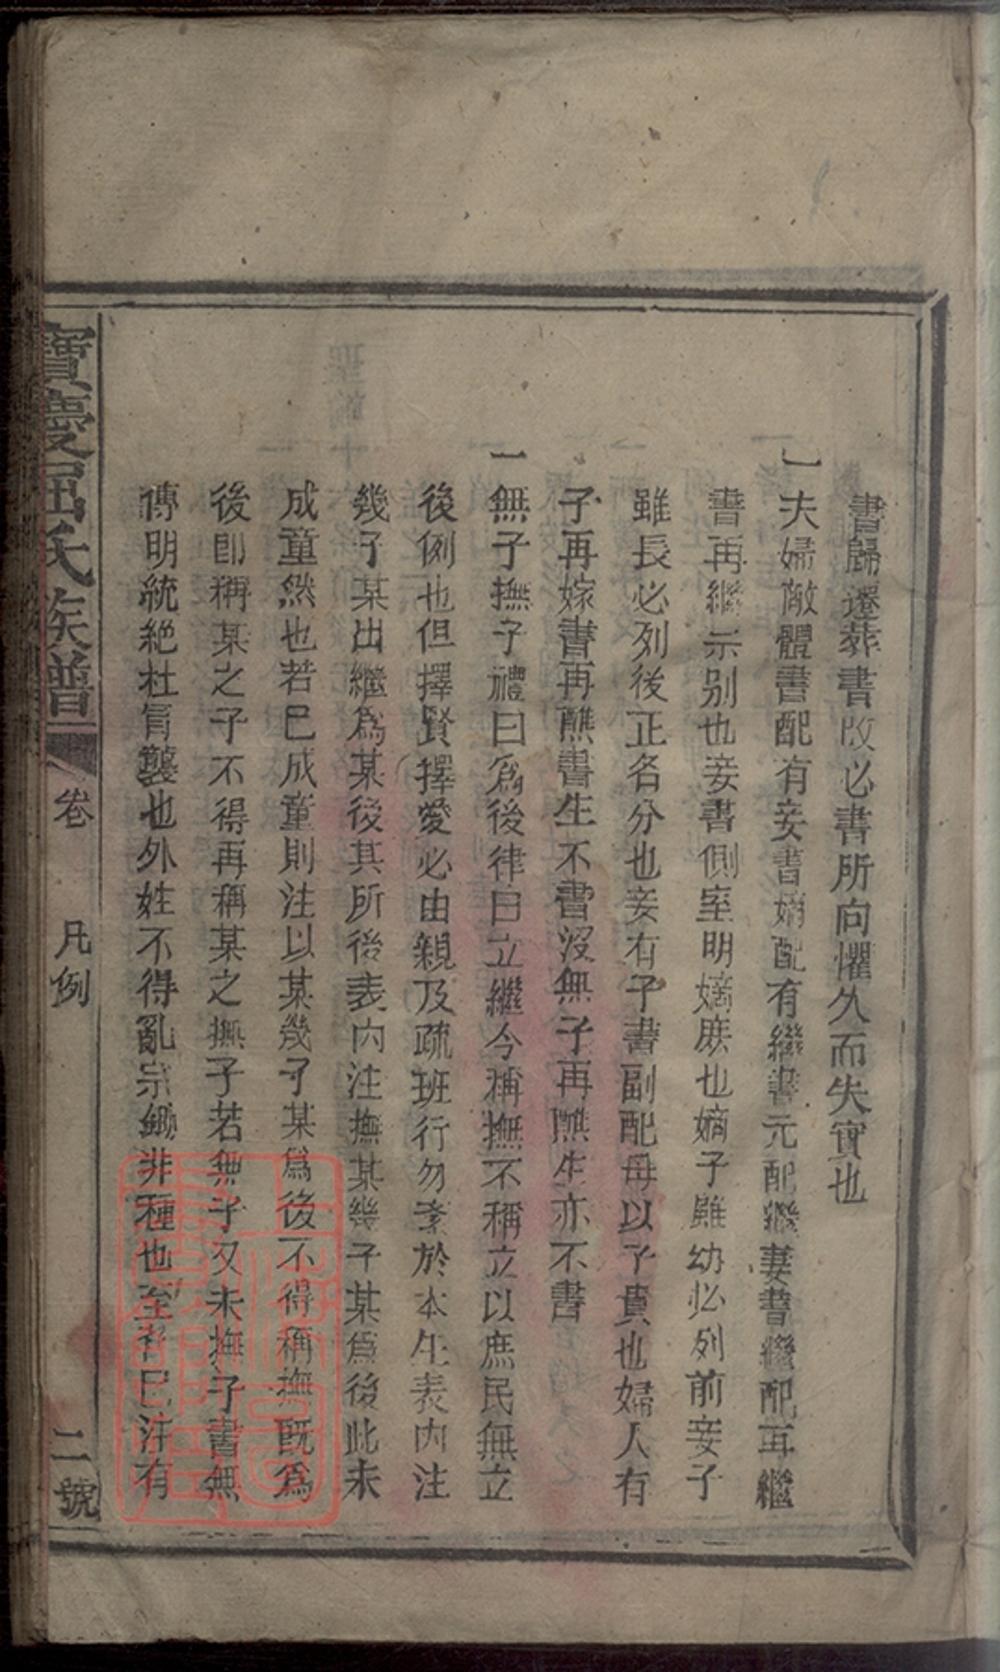 書歸遷葬書改必書所向懼久而失實也
一夫婦敵體書配有妾書嫡配有繼書元配繼妻書繼配再繼
書再繼示别也妾書側室明嫡庶也嫡子雖幼必列前妾子
雖長必列後正名分也妾有子書副配母以子貴也婦人有
子再嫁書再醮書生不書沒無子再醮生亦不書
一無子撫子禮曰爲後律曰立繼今稱撫不稱立以庶民無立
後例也但擇賢擇愛必由親及疏班行勿紊於本生表内注
幾子某出繼爲某後其所後表内注撫某幾子某爲後此未
成童然也若已成童則注以某幾子某爲後不得稱撫旣爲
後卽稱某之子不得再稱某之撫子若無子又未撫子書無
傳明統絶杜冒襲也外姓不得亂宗鋤非種也至巳注有
寶慶屈氏族譜
卷
凡例
二號